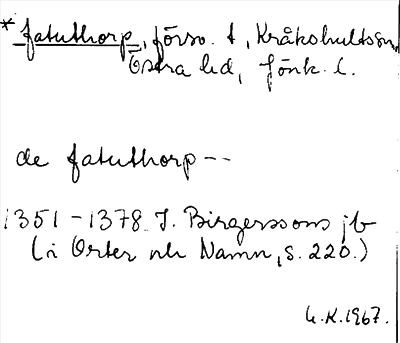 * fatuthorp, försv. t, Kråkshultssn,
Östra hd, Jönk. l.
de fatuthorp --
1351-1378 J. Birgerssons jb
(i Orter och Namn, s. 220.)
U.K. 1967.